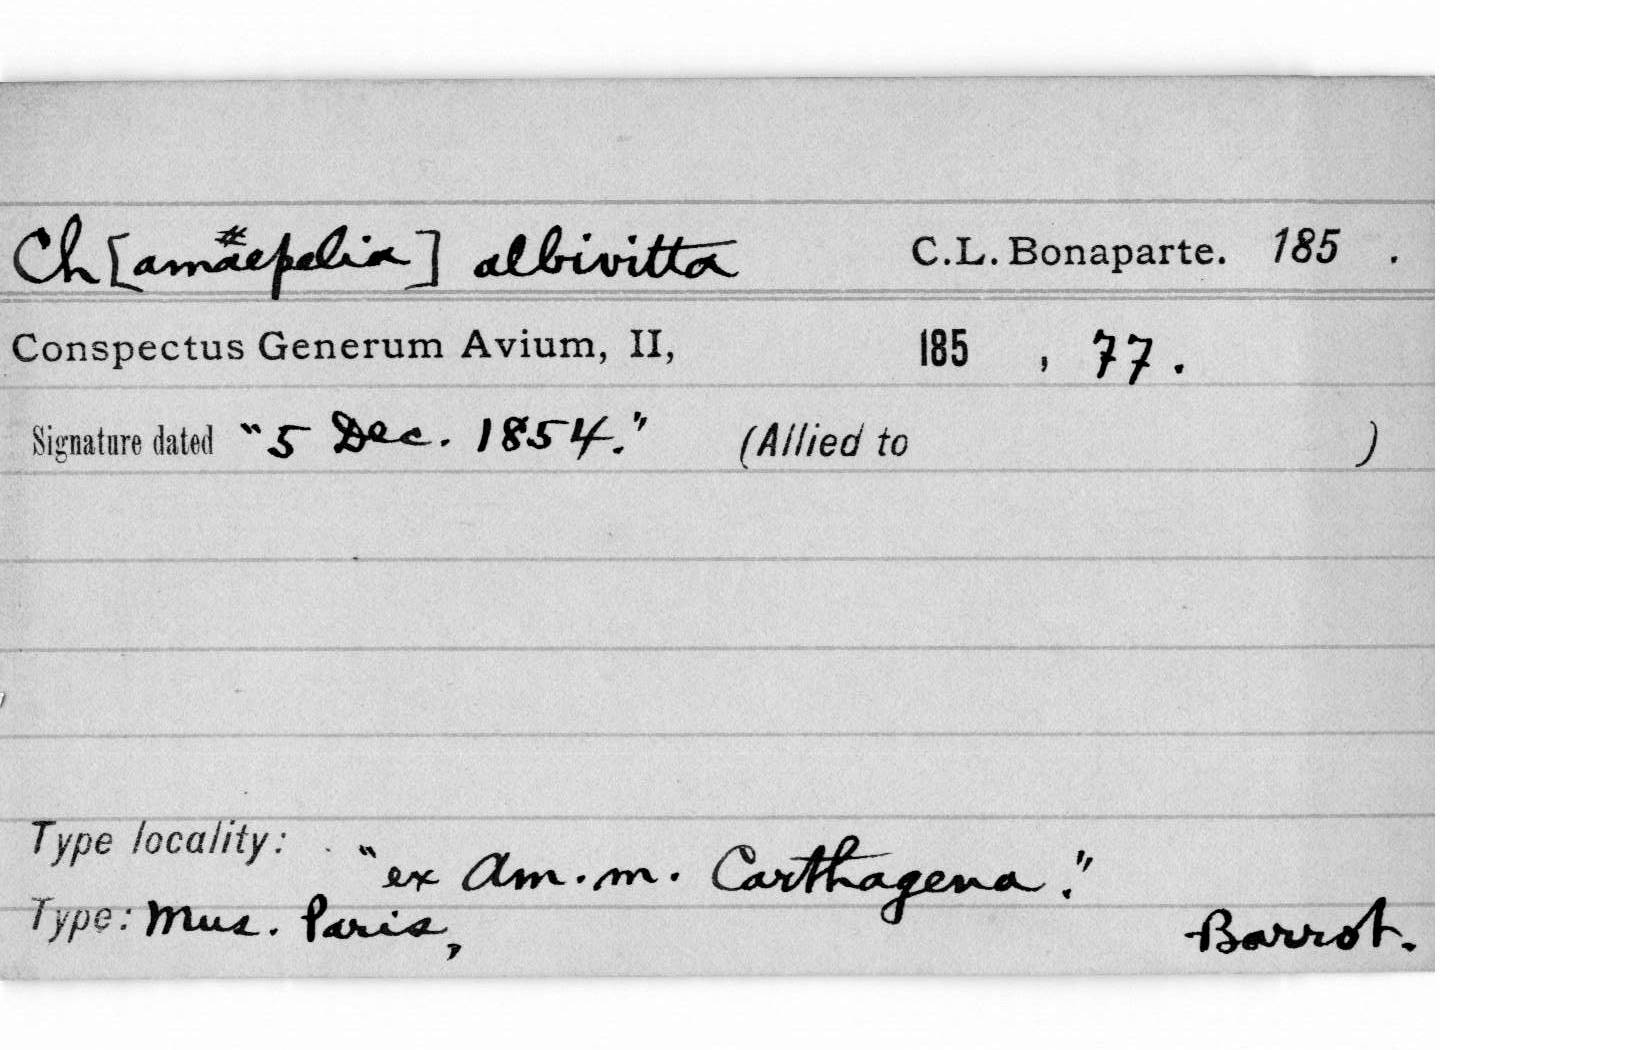 Ch[amaepelia] albivitta C.L. Bonaparte. 185 .
Conspectus Generum Avium, II, 185 , 77.
Signature dated "5 Dec. 1854." (Allied to )
Type locality: "ex Am. m. Carthagena."
Type: Mus. Paris, Barrot.